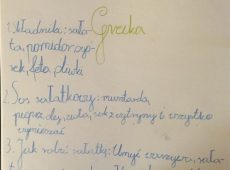 Grecka
1. Składniki: sała-
ta, pomidor, ogó-
rek, feta, oliwa
2. Sos sałatkowy: musztarda,
pieprz, oliwa, sok z cytryny i wszystko
wymieszać
3. Jak robić sałatkę: Umyć warzywa, sała-